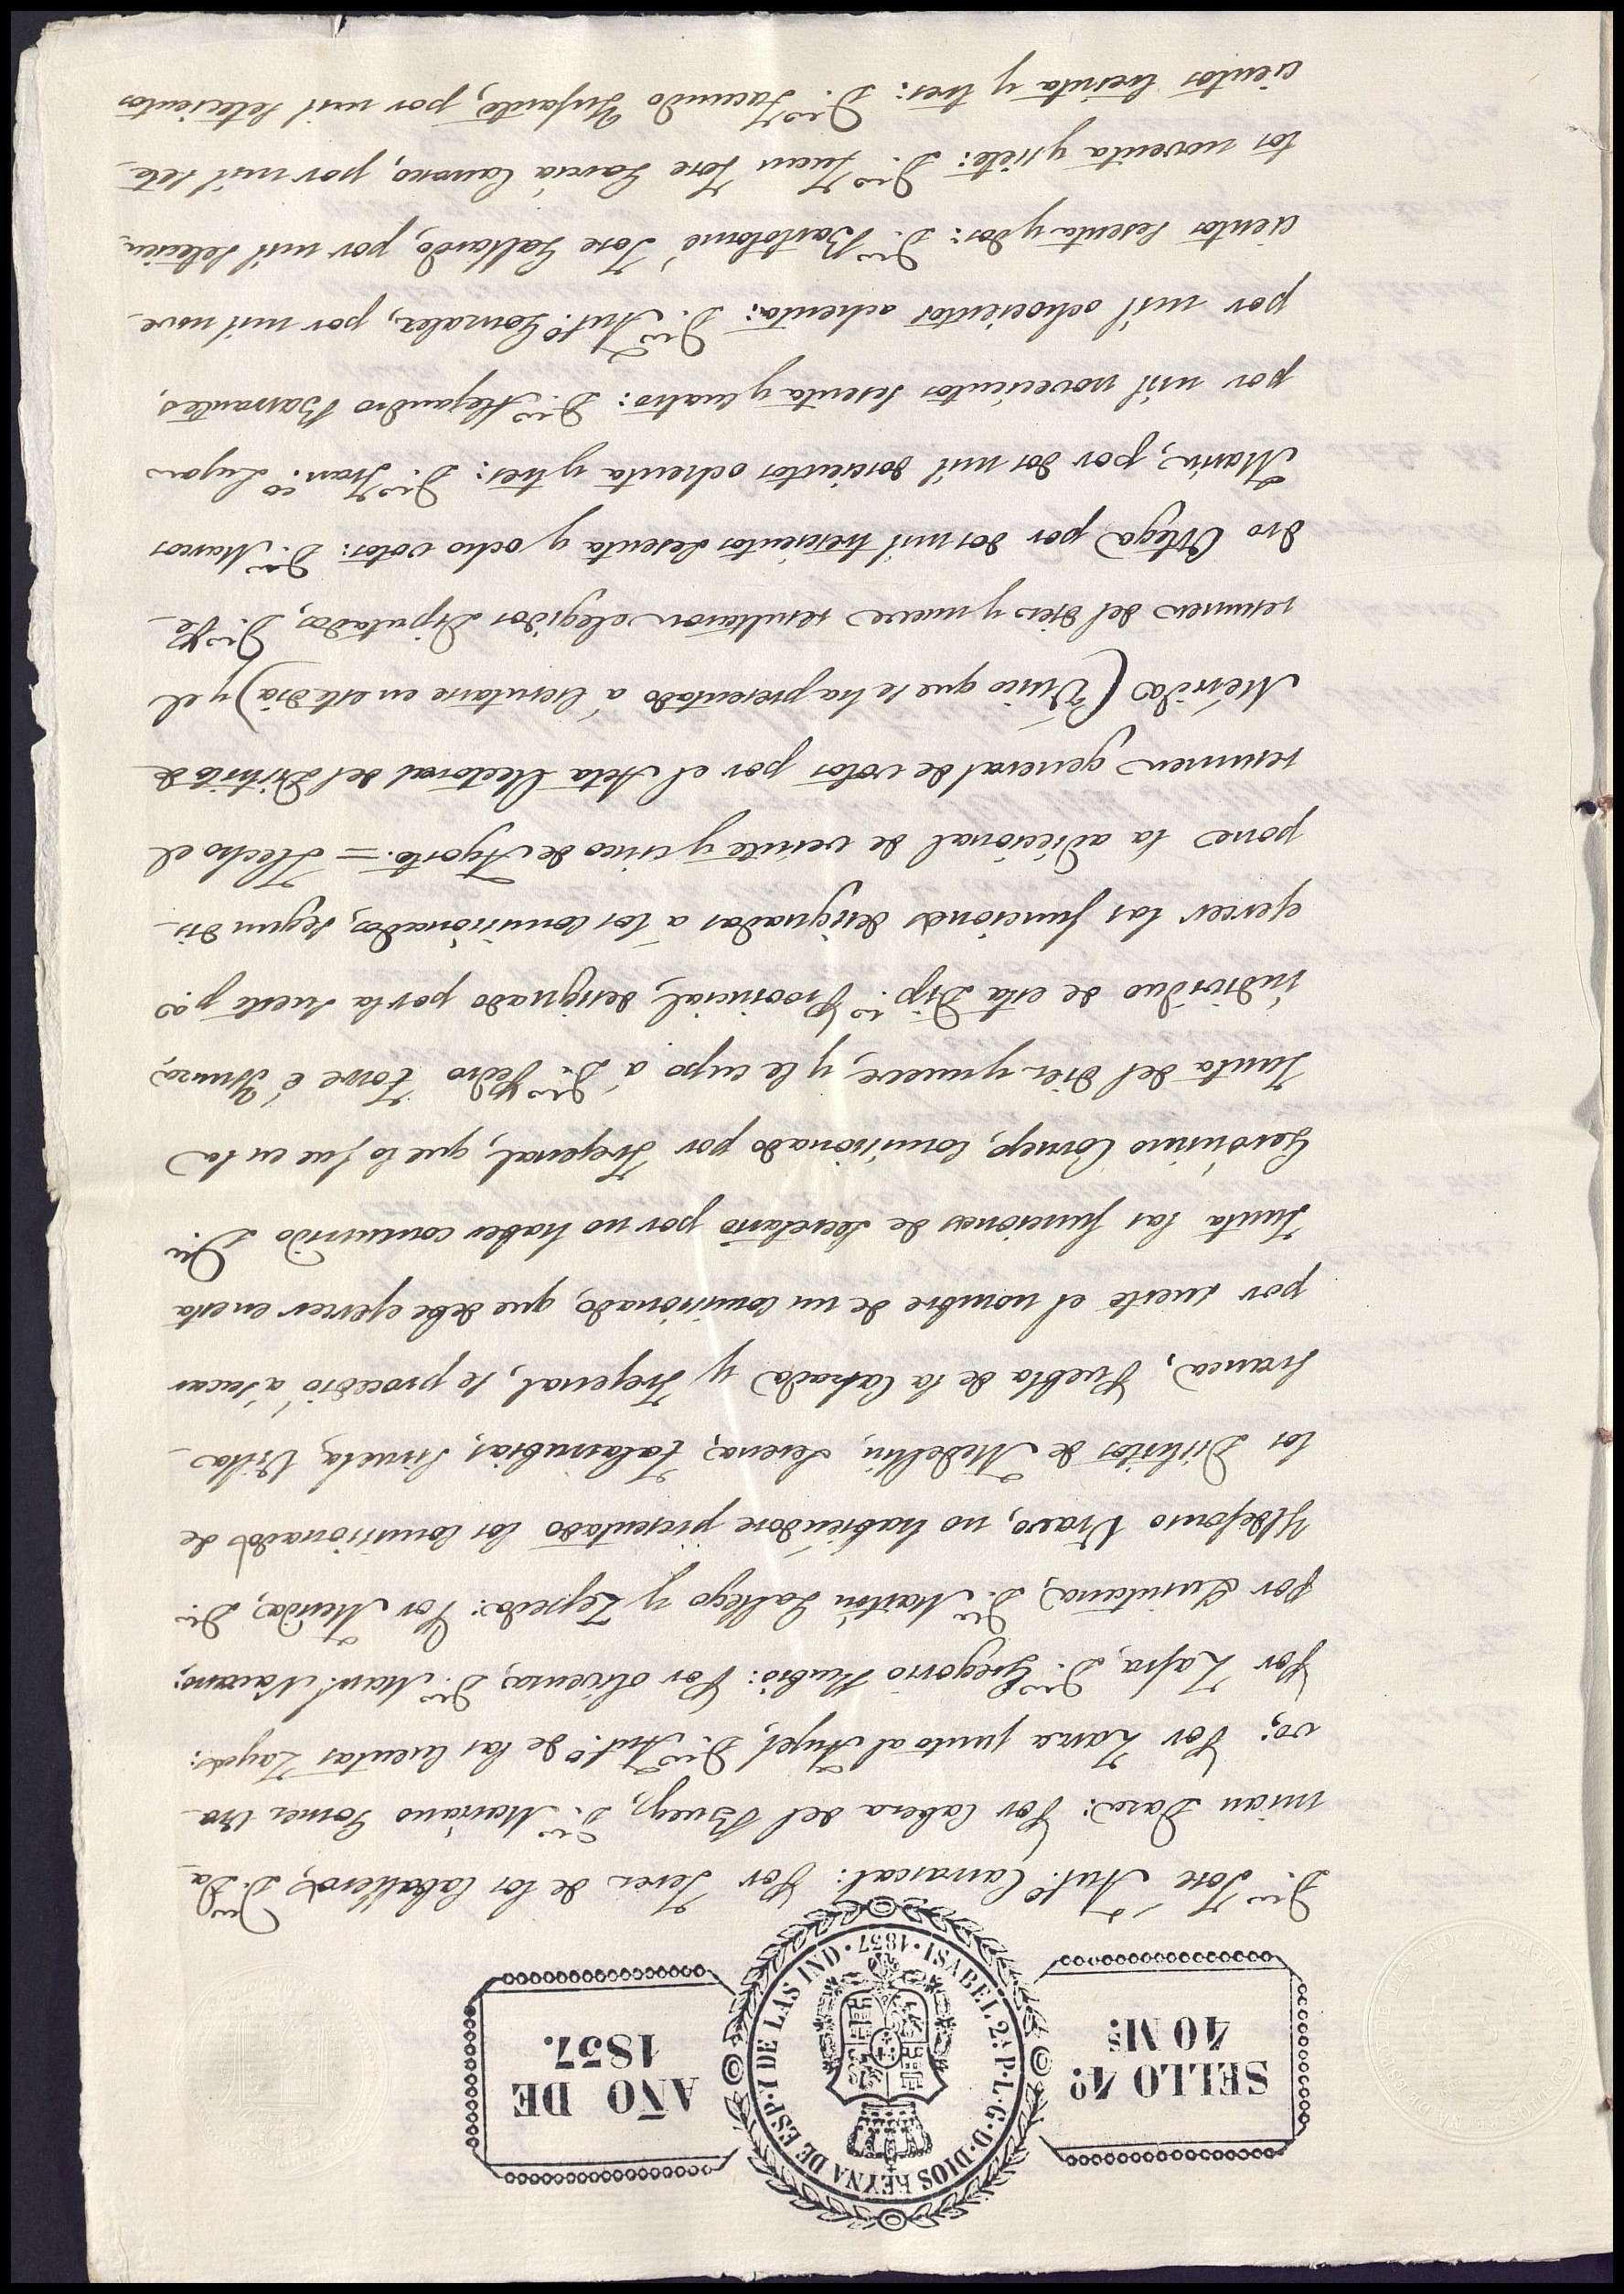 SELLO 4º
40 Mˢ
ISABEL 2ª P. L. G. D. DIOS REYNA DE ESP. Y DE LAS IND. 1837.
AÑO DE
1837.
Dⁿ Jose Antº Carrascal: Por Jerez de los Caballeros, Dⁿ Da-
mian Daza: Por Cabeza del Buey, Dⁿ Mariano Gomez Bra-
vo; Por Zarza junto al Anjel, Dⁿ Antº de las Cuentas Zayas:
Por Zafra, Dⁿ Gregorio Rubio: Por Olivenza, Dⁿ Manˡ Navarro;
Por Quintana, Dⁿ Martin Gallego y Zepeda: Por Merida, Dⁿ
Yldefonso Bravo, no habiendose presentado los Comisionados de
los Distritos de Medellin, Serena, Talarrubias, Siruela, Villa-
franca, Puebla de la Calzada y Frejenal, se procedió a sacar
por suerte el nombre de un Comisionado, que debe ejercer en esta
Junta las funciones de Secretario por no haber concurrido Dⁿ
Geronimo Cornejo, Comisionado por Frejenal, que lo fue en la
Junta del diez y nueve, y le cupo á Dⁿ Pedro Torre é Ysunza,
individuo de esta Dipⁿ Provincial, designado por la suerte pª
ejercer las funciones designadas a los Comisionados, segun dis-
pone la adicional de veinte y cinco de Agosto. = Hecho el
resumen general de votos por el Acta Electoral del Distrito de
Mérida (Unico que se ha presentado á Escrutarse en este dia) y el
resumen del diez y nueve resultaron elegidos Diputados, Dⁿ Pe-
dro Ortega por dos mil trescientos sesenta y ocho votos: Dⁿ Marcos
Marin, por dos mil doscientos ochenta y tres: Dⁿ Franᶜᵒ Lujan
por mil novecientos sesenta y cuatro: Dⁿ Alejandro Barrantes,
por mil ochocientos ochenta: Dⁿ Antº Gonzalez, por mil nove-
cientos sesenta y dos: Dⁿ Bartolomé Jose Gallardo, por mil setecien-
tos noventa y siete: Dⁿ Juan Jose Garcia Carrasco, por mil sete-
cientos treinta y tres: Dⁿ Facundo Ynfante, por mil setecientos